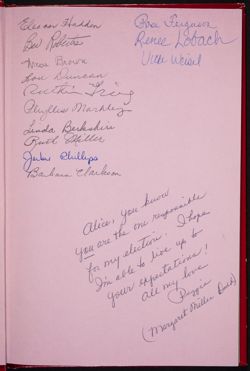 Eleanor Hadden
Bev Roberts
Brown
Lou Duncan
King
Phyllis Markley
Linda Berkshire
Ruth Miller
Phillips
Barbara Clarkson
Ferguson
Renee Lobach
Alice, you know
you are the one responsible
for my election. I hope
I'm able to live up to
your expectations!
all my love
Peggie
(Margaret Miller